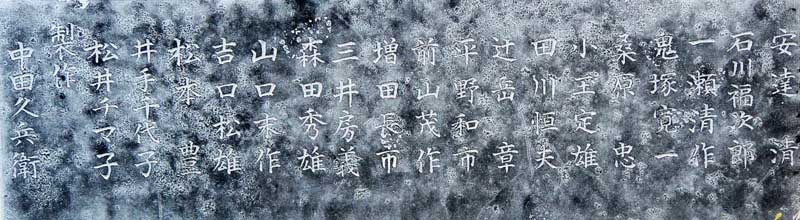 安達 清
石川福次郎
一瀬清作
鬼塚寛一
桑原 忠
小王定雄
田川恒夫
辻岳 章
平野和市
前山茂作
増田長市
三井房義
森田秀雄
山口末作
吉口松雄
松本 豊
井手千代子
松井チマ子
製作
中田久兵衛